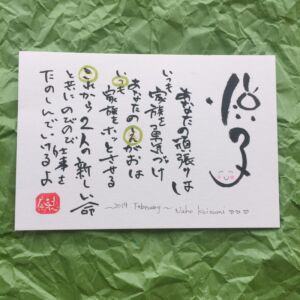 悦子
あなたの頑張りは
いつも家族を勇気づけ
あなたのえがおは
いつも家族をホッとさせる
これから2人の新しい命
と共にのびのび仕事を
たのしんでいけるよ
~2019 February~ Naho Koizumi ♡♡♡